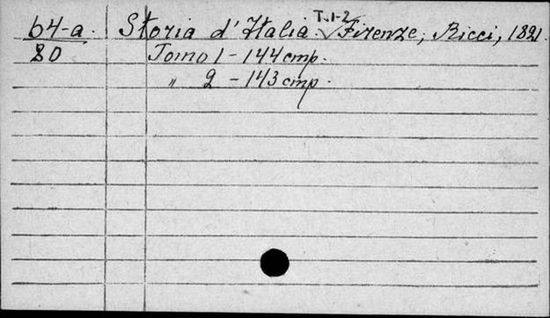 64-a. Storia d'Italia. T.1-2 Firenze, Ricci, 1821.
80 Tomo 1 - 144 стр.
" 2 - 143 стр.